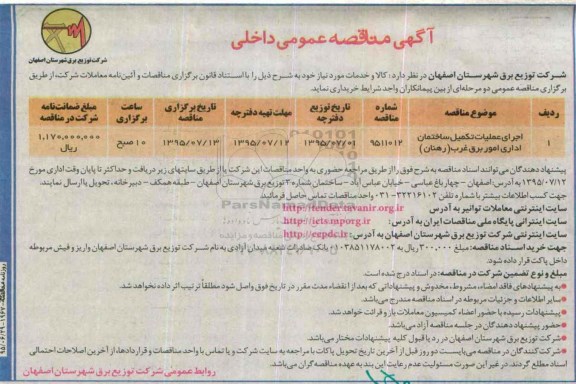 آگهی مناقصه عمومی داخلی
شرکت توزیع برق شهرستان اصفهان
شرکت توزیع برق شهرستان اصفهان در نظر دارد: کالا و خدمات مورد نیاز خود به شرح ذیل را با استناد قانون برگزاری مناقصات و آئین‌نامه معاملات شرکت، از طریق
برگزاری مناقصه عمومی دو مرحله‌ای از بین پیمانکاران واجد شرایط خریداری نماید.
ردیف موضوع مناقصه شماره مناقصه تاریخ توزیع دفترچه مهلت تهیه دفترچه تاریخ برگزاری مناقصه ساعت برگزاری مبلغ ضمانت‌نامه شرکت در مناقصه
۱ اجرای عملیات تکمیل ساختمان اداری امور برق غرب (رهنان) ۹۵۱۱۰۱۲ ۱۳۹۵/۰۷/۰۱ ۱۳۹۵/۰۷/۱۲ ۱۳۹۵/۰۷/۱۳ ۱۰ صبح ۱,۱۷۰,۰۰۰,۰۰۰ ریال
پیشنهاد دهندگان می‌توانند اسناد مناقصه به شرح فوق را از طریق مراجعه حضوری به واحد مناقصات این شرکت یا از طریق سایتهای زیر دریافت و حداکثر تا پایان وقت اداری مورخ
۱۳۹۵/۰۷/۱۲ به آدرس: اصفهان - چهارباغ عباسی - خیابان عباس آباد - ساختمان شماره ۳ توزیع برق شهرستان اصفهان - طبقه همکف - دبیرخانه، تحویل یا ارسال نمایند.
جهت کسب اطلاعات بیشتر با شماره تلفن ۳۲۲۱۶۱۰۲-۰۳۱ واحد مناقصات تماس حاصل فرمائید.
سایت اینترنتی معاملات توانیر به آدرس http://tender.tavanir.org.ir
سایت اینترانتی پایگاه ملی مناقصات ایران به آدرس: http://iets.mporg.ir
سایت اینترنتی شرکت توزیع برق شهرستان اصفهان به آدرس: http://eepdc.ir
جهت خرید اسناد مناقصه: مبلغ ۳۰۰,۰۰۰ ریال به ۰۱۰۳۸۵۱۱۷۸۰۰۲ بانک صادرات شعبه میدان آزادی به نام شرکت توزیع برق شهرستان اصفهان واریز و فیش مربوطه
داخل پاکت قرار داده شود.
مبلغ و نوع تضمین شرکت در مناقصه: در اسناد درج شده است.
به پیشنهادهای فاقد امضاء، مشروط، مخدوش و پیشنهاداتی که بعد از انقضاء مدت مقرر در تاریخ فوق واصل شود مطلقاً ترتیب اثر داده نخواهد شد.
سایر اطلاعات و جزئیات مربوطه در اسناد مناقصه مندرج می‌باشد.
پیشنهادات رسیده با حضور اعضاء کمیسیون معاملات باز و قرائت خواهد شد.
حضور پیشنهاد دهندگان در جلسه مناقصه آزاد می‌باشد.
شرکت توزیع برق شهرستان اصفهان در رد یا قبول کلیه پیشنهادات مختار می‌باشد.
شرکت کنندگان در مناقصه می‌بایست دو روز قبل از آخرین تاریخ تحویل پاکات با مراجعه به سایت شرکت و یا تماس با واحد مناقصات و قراردادها، از آخرین اصلاحات احتمالی
اسناد مطلع گردند. در غیر این صورت مسئولیت عدم رعایت این بند به عهده مناقصه گران می‌باشد.
روابط عمومی شرکت توزیع برق شهرستان اصفهان